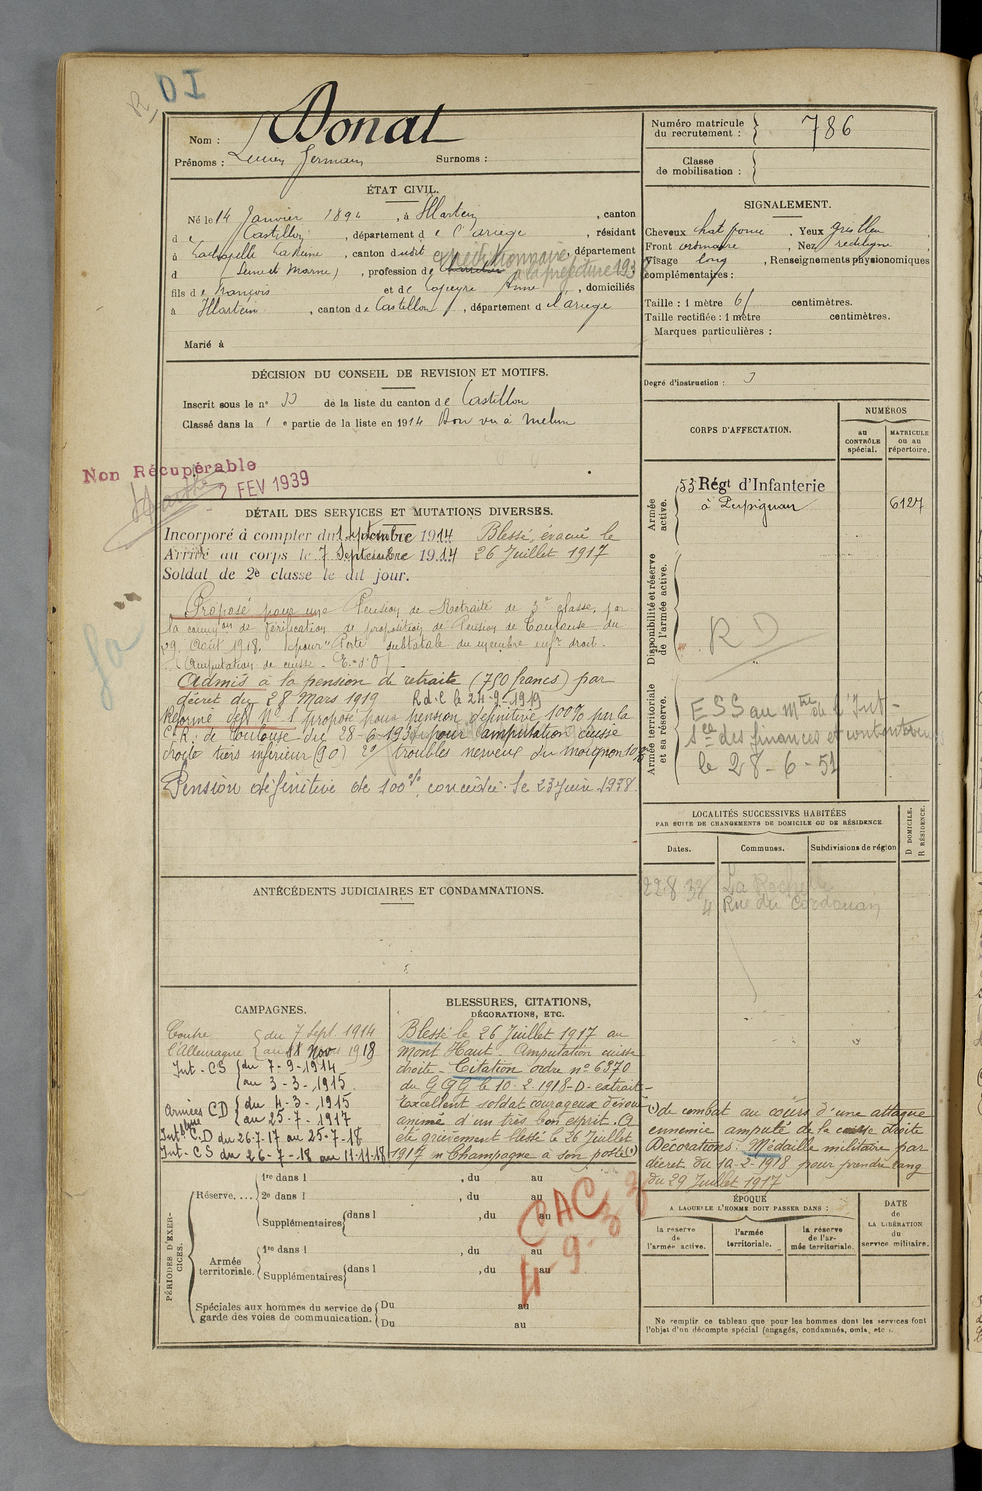 DI
Nom : Donat
Prénoms : Lucien Germain Surnoms :
Numéro matricule du recrutement : 786
Classe de mobilisation :
ÉTAT CIVIL.
Né le 14 Janvier 1894, à Illartein, canton
de Castillon, département de l'ariège, résidant
à Lachapelle, canton dudit, département
d (Seine et Marne), profession de expéditionnaire à la préfecture 193
fils de François et de Anne, domiciliés
à Illartein, canton de Castillon, département d l'ariège
Marié à
SIGNALEMENT.
Cheveux chat foncé, Yeux gris bleu
Front ordinaire, Nez rectiligne
Visage long, Renseignements physionomiques
complémentaires :
Taille : 1 mètre 61 centimètres.
Taille rectifiée : 1 mètre centimètres.
Marques particulières :
Degré d'instruction : 3
DÉCISION DU CONSEIL DE REVISION ET MOTIFS.
Inscrit sous le n° 33 de la liste du canton de Castillon
Classé dans la 1e partie de la liste en 1914 Bon vu à Melun
Non Récupérable
2 FEV 1939
DÉTAIL DES SERVICES ET MUTATIONS DIVERSES.
Incorporé à compter du 1 septembre 1914 Blessé, évacué le
Arrivé au corps le 7 Septembre 1914 26 Juillet 1917
Soldat de 2e classe le dit jour.
Proposé pour une Pension de Retraite de 3e classe, par
la comon de vérification de proposition de Pension de Toulouse du
29 Août 1918. pour "Perte subtotale du membre infr droit.
(Amputation de cuisse
Admis à la pension de retraite (750 francs) par
décret du 28 Mars 1919 R.d.l. le 24-9-1919
Réformé déf N° 1 proposé pour pension définitive 100% par la
C.R. de Toulouse du 28-6-193 pour amputation cuisse
droite tiers inférieur (90) 2° troubles nerveux du moignon 10%
Pension définitive de 100%, concédée le 23 Juin 1938
CORPS D'AFFECTATION.
NUMÉROS
AU CONTRÔLE spécial.
MATRICULE ou au répertoire.
Armée active.
53 Régt d'Infanterie
à Perpignan
6127
Disponibilité et réserve de l'armée active.
RD
Armée territoriale et sa réserve.
ESS au Mtre de l'Int-
Sce des finances et
le 28-6-51
LOCALITÉS SUCCESSIVES HABITÉES
PAR SUITE DE CHANGEMENTS DE DOMICILE OU DE RÉSIDENCE
Dates.
Communes.
Subdivisions de région
D DOMICILE.
R RÉSIDENCE.
22 8 33 La Rochelle
4 Rue du Cordouan
ANTÉCÉDENTS JUDICIAIRES ET CONDAMNATIONS.
CAMPAGNES.
Contre l'Allemagne du 7 Sept 1914
au 11 Nov 1918
Int-CS du 7-9-1914
au 3-3-1915
Armées CD du 4-3-1915
au 25-7-1917
Int CD du 26-7-17 au 25-7-18
Int-CS du 26-7-18 au 11-11-18
BLESSURES, CITATIONS,
DÉCORATIONS, ETC.
Blessé le 26 Juillet 1917 au
Mont Haut. Amputation cuisse
droite - Citation ordre n° 6370
du G Q G le 10-2-1918-D-extrait-
Excellent soldat courageux dévoué
animé d'un très bon esprit. A
été grièvement blessé le 26 Juillet
1917 en Champagne à son poste (1)
(1) de combat au cours d'une attaque
ennemie amputé de la cuisse droite
Décorations : Médaille militaire par
décret du 10-2-1918 pour prendre rang
du 29 Juillet 1917
PÉRIODES D'EXERCICES.
Réserve....
1re dans l , du au
2e dans l , du au
Supplémentaires dans l , du au
Armée territoriale.
1re dans l , du au
Supplémentaires dans l , du au
Spéciales aux hommes du service de garde des voies de communication.
Du au
Du au
CAC
4-9-33
ÉPOQUE
A LAQUELLE L'HOMME DOIT PASSER DANS :
la réserve de l'armée active.
l'armée territoriale.
la réserve de l'armée territoriale.
DATE de LA LIBÉRATION du service militaire.
Ne remplir ce tableau que pour les hommes dont les services font
l'objet d'un décompte spécial (engagés, condamnés, omis, etc.).